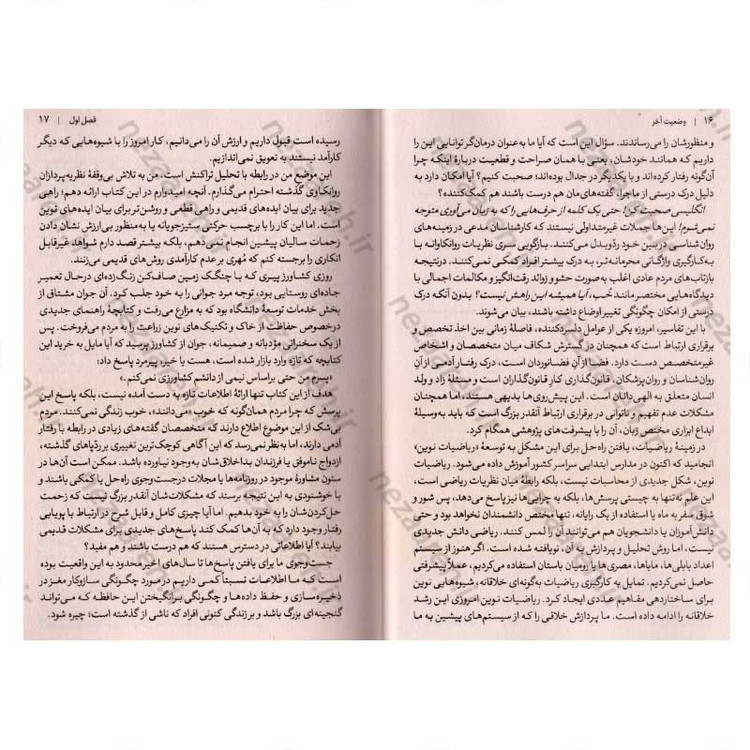 ۱۶ | وضعیت آخر
و منظورشان را می‌رساندند. سؤال این است که آیا ما به‌عنوان درمان‌گر توانایی این را
داریم که همانند خودشان، یعنی با همان صراحت و قطعیت دربارهٔ اینکه چرا
آن‌گونه رفتار کرده‌اند و با یکدیگر در جدال بوده‌اند؛ صحبت کنیم؟ آیا امکان دارد به
دلیل درک درستی از ماجرا، گفته‌های‌مان هم درست باشند هم کمک‌کننده؟
انگلیسی صحبت کن! حتی یک کلمه از حرف‌هایی را که به زبان می‌آوری متوجه
نمی‌شوم! این‌ها جملات غیرمتداولی نیستند که کارشناسان مدعی در زمینه‌های
روان‌شناسی در بین خود ردّوبدل می‌کنند. بازگویی سری نظریات روانکاوانه با
به‌کارگیری واژگانی محرمانه‌تر، به درک بیشتر افراد کمکی نمی‌کند. درنتیجه
بازتاب‌های مردم عادی اغلب به‌صورت حشو و زوائد رقت‌انگیز و مکالمات اجمالی با
دیدگاه‌هایی مختصر مانند خُب، آیا همیشه این راهش نیست؟ بدون آنکه درک
درستی از امکان چگونگی تغییر اوضاع داشته باشند، بیان می‌شوند.
با این تفاسیر، امروزه یکی از عوامل دلسردکننده، فاصلهٔ زمانی بین اخذ تخصص و
برقراری ارتباط است که همچنان در گسترش شکاف میان متخصصان و اشخاص
غیرمتخصص دست دارد. فضا از آنِ فضانوردان است، درک رفتار آدمی از آنِ
روان‌شناسان و روان‌پزشکان، قانون‌گذاری کار قانون‌گذاران است و مسئلهٔ زاد و ولد
انسان متعلق به الهی‌دانان است. این پیش‌روی‌ها بدیهی هستند، اما همچنان
مشکلات عدم تفهیم و ناتوانی در برقراری ارتباط آنقدر بزرگ است که باید به‌وسیلهٔ
ابداع ابزاری مختص زبان، آن را با پیشرفت‌های پژوهشی همگام کرد.
در زمینهٔ ریاضیات، یافتن راه‌حل برای این مشکل به توسعهٔ «ریاضیات نوین»
انجامید که اکنون در مدارس ابتدایی سراسر کشور آموزش داده می‌شود. ریاضیات
نوین، شکل جدیدی از محاسبات نیست، بلکه رابطهٔ میان نظریات ریاضی است،
این علم نه‌تنها به چیستی پرسش‌ها، بلکه به چرایی‌ها نیز پاسخ می‌دهد، پس شور و
شوق سفر به ماه یا استفاده از یک رایانه، تنها مختص دانشمندان نخواهد بود و حتی
دانش‌آموزان یا دانشجویان هم می‌توانند آن را لمس کنند. ریاضی دانش جدیدی
نیست، اما روش تحلیل و پردازش به آن، نویافته شده است. اگر هنوز از سیستم
اعداد بابلی‌ها، مایاها، مصری‌ها یا رومیان باستان استفاده می‌کردیم، عملاً پیشرفتی
حاصل نمی‌کردیم. تمایل به کارگیری ریاضیات به‌گونه‌ای خلاقانه، شیوه‌هایی نوین
برای ساختاردهی مفاهیم عددی ایجاد کرد. ریاضیات نوین امروزی این رشد
خلاقانه را ادامه داده است. ما پردازش خلاقی را که از سیستم‌های پیشین به ما
فصل اول | ۱۷
رسیده است قبول داریم و ارزش آن را می‌دانیم، کار امروز را با شیوه‌هایی که دیگر
کارآمد نیستند به تعویق نمی‌اندازیم.
این موضع من در رابطه با تحلیل تراکنش است. من به تلاش بی‌وقفهٔ نظریه‌پردازان
روانکاوی گذشته احترام می‌گذارم. آنچه امیدوارم در این کتاب ارائه دهم؛ راهی
جدید برای بیان ایده‌های قدیمی و راهی قطعی و روشن‌تر برای بیان ایده‌های نوین
است. اما این کار را با برچسب حرکتی ستیزجویانه یا به‌منظور بی‌ارزش نشان دادن
زحمات سالیان پیشین انجام نمی‌دهم، بلکه بیشتر قصد دارم شواهد غیرقابل
انکاری را برجسته کنم که مُهری بر عدم کارآمدی روش‌های قدیمی می‌زنند.
روزی کشاورز پیری که با چنگک زمین صاف‌کن زنگ‌زده‌ای درحال تعمیر
جاده‌ای روستایی بود، توجه مرد جوانی را به خود جلب کرد. آن جوان مشتاق از
بخش خدمات توسعهٔ دانشگاه بود که به مزارع می‌رفت و کتابچهٔ راهنمای جدیدی
درخصوص حفاظت از خاک و تکنیک‌های نوین زراعت را به مردم می‌فروخت. پس
از یک سخنرانی مؤدبانه و صمیمانه، جوان از کشاورز پرسید که آیا مایل به خرید این
کتابچه که تازه وارد بازار شده است، هست یا خیر، پیرمرد پاسخ داد:
«پسرم من حتی براساس نیمی از دانشم کشاورزی نمی‌کنم.»
هدف از این کتاب تنها ارائهٔ اطلاعات تازه به دست آمده نیست، بلکه پاسخ این
پرسش که چرا مردم همان‌گونه که خوب «می‌دانند»، خوب زندگی نمی‌کنند. مردم
بی‌شک از این موضوع اطلاع دارند که متخصصان گفته‌های زیادی در رابطه با رفتار
آدمی دارند، اما به‌نظر نمی‌رسد که این آگاهی کوچک‌ترین تغییری بر ردّپاهای گذشته،
ازدواج ناموفق یا فرزندان بداخلاق‌شان به‌وجود نیاورده باشد. ممکن است آن‌ها در
ستون مشاورهٔ موجود در روزنامه‌ها یا مجلات درجست‌وجوی راه‌حل یا کمکی باشند و
با خوشنودی به این نتیجه برسند که مشکلات‌شان آنقدر بزرگ نیست که زحمت
حل‌کردن‌شان را به خود بدهیم. اما آیا چیزی کامل و قابل شرح در ارتباط با پویایی
رفتار وجود دارد که به آن‌ها کمک کند پاسخ‌های جدیدی برای مشکلات قدیمی
بیابند؟ آیا اطلاعاتی در دسترس هستند که هم درست باشند و هم مفید؟
جست‌وجوی ما برای یافتن پاسخ‌ها تا سال‌های اخیر محدود به این واقعیت بوده
است که ما اطلاعات نسبتاً کمی داریم در مورد چگونگی سازوکار مغز در
ذخیره‌سازی و حفظ داده‌ها و چگونگی برانگیختن این حافظه که می‌تواند
گنجینه‌ای بزرگ باشد و بر زندگی کنونی افراد که ناشی از گذشته است؛ چیره شود.
nezaah.ir